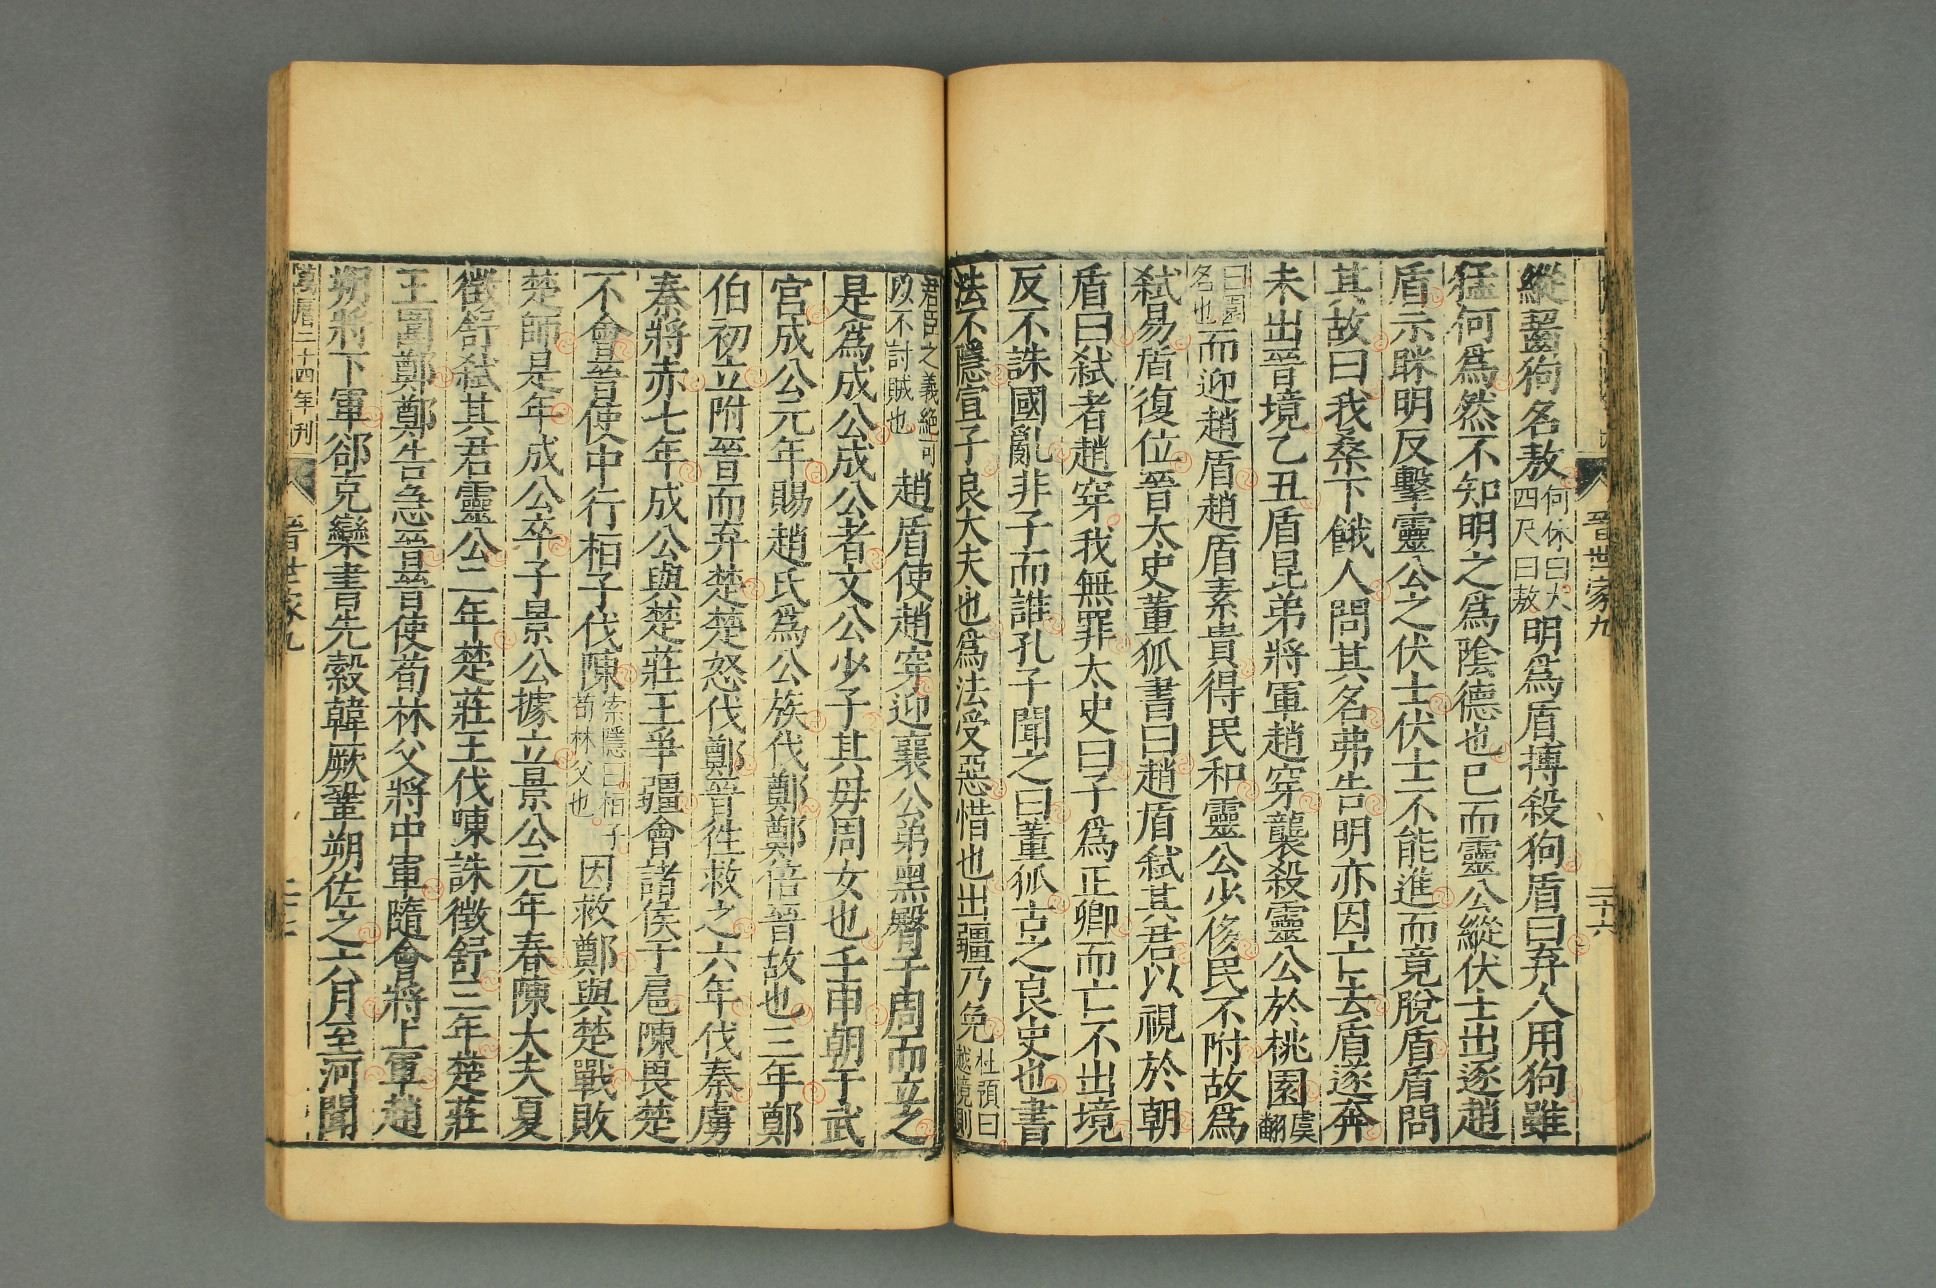 晉世家九
三十六
縱齧狗名敖何休曰犬四尺曰敖明爲盾搏殺狗盾曰弃人用狗雖
猛何爲然不知明之爲陰德也已而靈公縱伏士出逐趙
盾示眯明反擊靈公之伏士伏士不能進而竟脫盾盾問
其故曰我桑下餓人問其名弗告明亦因亡去盾遂奔
未出晉境乙丑盾昆弟將軍趙穿襲殺靈公於桃園虞翻
曰園名也而迎趙盾趙盾素貴得民和靈公少侈民不附故爲
弑易盾復位晉太史董狐書曰趙盾弑其君以視於朝
盾曰弑者趙穿我無罪太史曰子爲正卿而亡不出境
反不誅國亂非子而誰孔子聞之曰董狐古之良史也書
法不隱宣子良大夫也爲法受惡惜也出疆乃免杜預曰越境則
君臣之義絕可以不討賊也趙盾使趙穿迎襄公弟黑臀于周而立之
是爲成公成公者文公少子其母周女也壬申朝于武
宮成公元年賜趙氏爲公族伐鄭鄭倍晉故也三年鄭
伯初立附晉而弃楚楚怒伐鄭晉往救之六年伐秦虜
秦將赤七年成公與楚莊王爭疆會諸侯于扈陳畏楚
不會晉使中行桓子伐陳索隱曰桓子荀林父也因救鄭與楚戰敗
楚師是年成公卒子景公據立景公元年春陳大夫夏
徵舒弑其君靈公二年楚莊王伐陳誅徵舒三年楚莊
王圍鄭鄭告急晉晉使荀林父將中軍隨會將上軍趙
朔將下軍郤克欒書先縠韓厥鞏朔佐之六月至河聞
萬曆二十四年刊
晉世家九